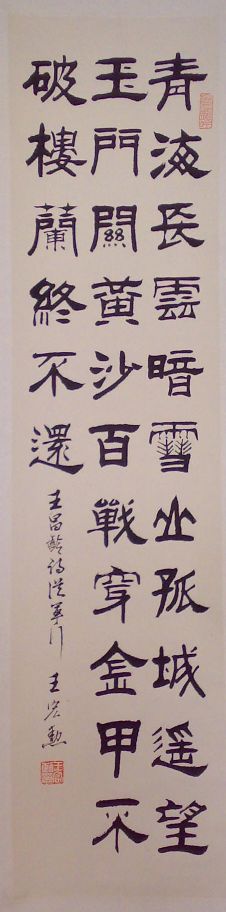 青海長雲暗雪山孤城遙望
玉門關黃沙百戰穿金甲不
破樓蘭終不還
王昌齡詩從軍行 王宏勲